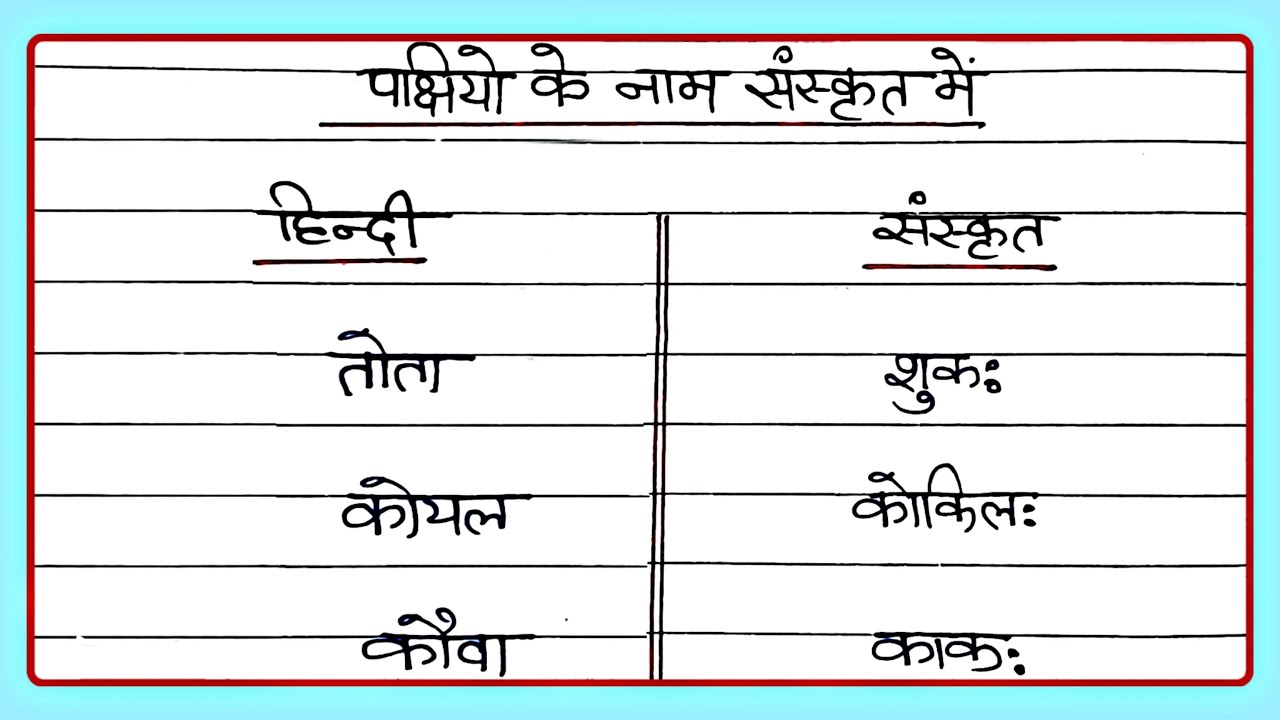 पक्षियो के नाम संस्कृत में
हिन्दी संस्कृत
तोता शुकः
कोयल कोकिलः
कौवा काकः